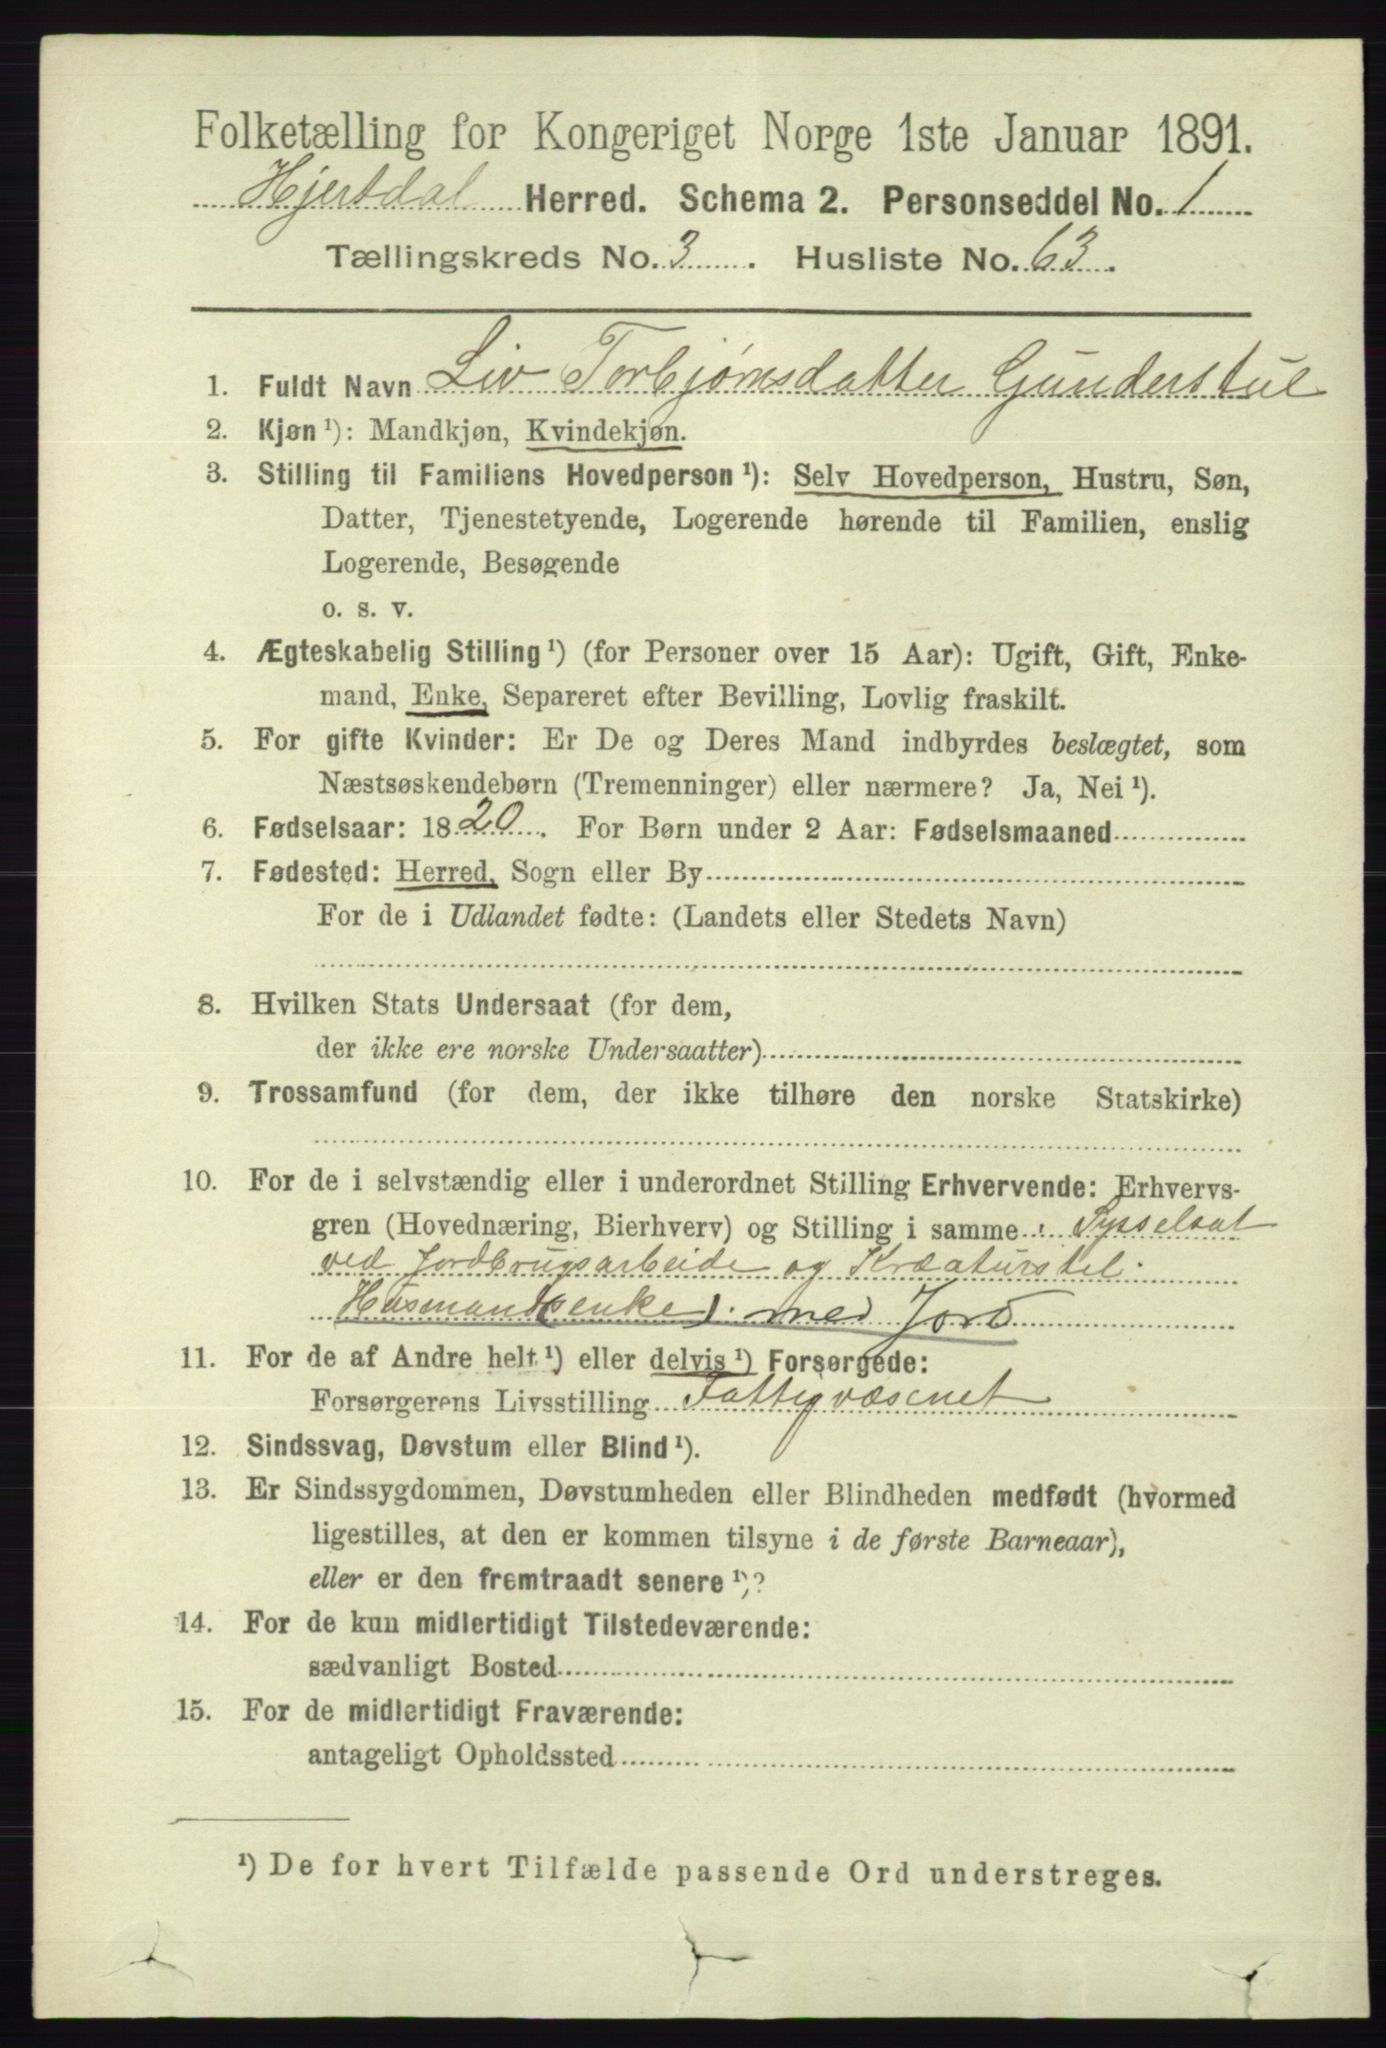 Folketælling for Kongeriget Norge 1ste Januar 1891.
Hjertdal Herred. Schema 2. Personseddel No. 1
Tællingskreds No. 3. Husliste No. 63.
1. Fuldt Navn Liv Torbjørnsdatter Gunderstul
2. Kjøn ¹): Mandkjøn, Kvindekjøn.
3. Stilling til Familiens Hovedperson ¹): Selv Hovedperson, Hustru, Søn,
Datter, Tjenestetyende, Logerende hørende til Familien, enslig
Logerende, Besøgende
o. s. v.
4. Ægteskabelig Stilling ¹) (for Personer over 15 Aar): Ugift, Gift, Enke-
mand, Enke, Separeret efter Bevilling, Lovlig fraskilt.
5. For gifte Kvinder: Er De og Deres Mand indbyrdes beslægtet, som
Næstsøskendebørn (Tremenninger) eller nærmere? Ja, Nei ¹).
6. Fødselsaar: 1820. For Børn under 2 Aar: Fødselsmaaned
7. Fødested: Herred, Sogn eller By
For de i Udlandet fødte: (Landets eller Stedets Navn)
8. Hvilken Stats Undersaat (for dem,
der ikke ere norske Undersaatter)
9. Trossamfund (for dem, der ikke tilhøre den norske Statskirke)
10. For de i selvstændig eller i underordnet Stilling Erhvervende: Erhvervs-
gren (Hovednæring, Bierhverv) og Stilling i samme: Sysselsat
ved Jordbrugsarbeide og Kreaturstel.
Husmand(senke) med Jord
11. For de af Andre helt ¹) eller delvis ¹) Forsørgede:
Forsørgerens Livsstilling Fattigvæsenet
12. Sindssvag, Døvstum eller Blind ¹).
13. Er Sindssygdommen, Døvstumheden eller Blindheden medfødt (hvormed
ligestilles, at den er kommen tilsyne i de første Barneaar),
eller er den fremtraadt senere ¹)?
14. For de kun midlertidigt Tilstedeværende:
sædvanligt Bosted
15. For de midlertidigt Fraværende:
antageligt Opholdssted
¹) De for hvert Tilfælde passende Ord understreges.